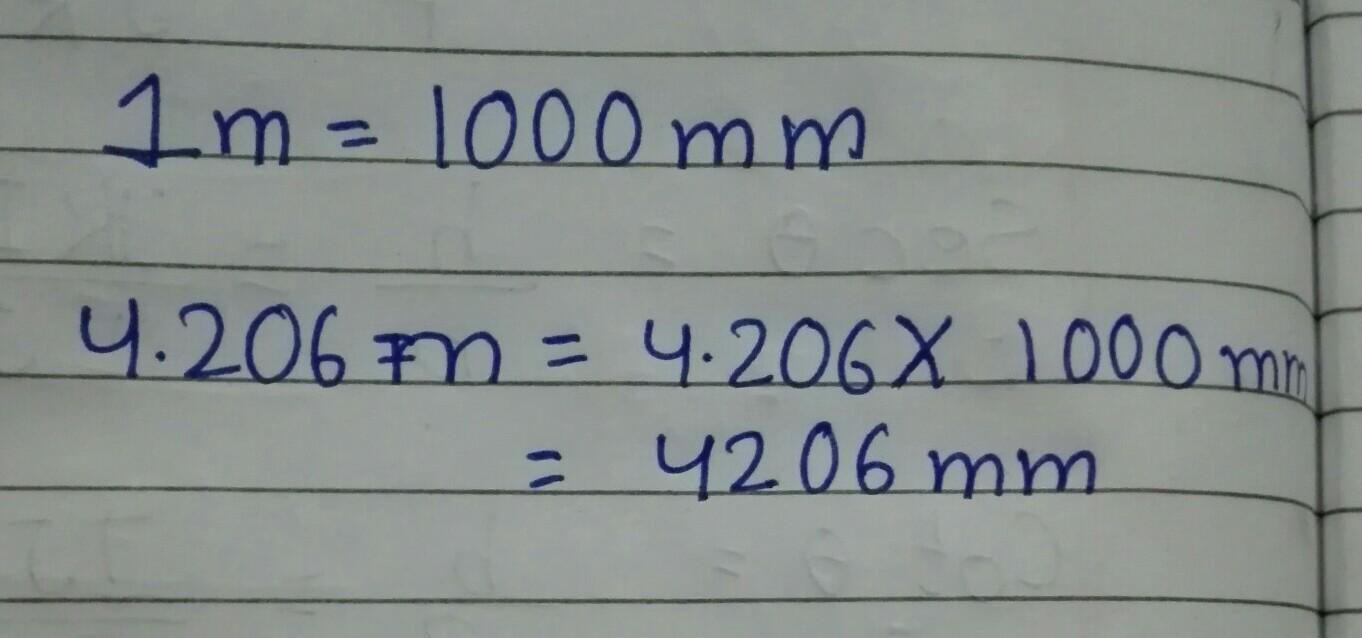 1 m = 1000 mm
4.206 m = 4.206 X 1000 mm
= 4206 mm